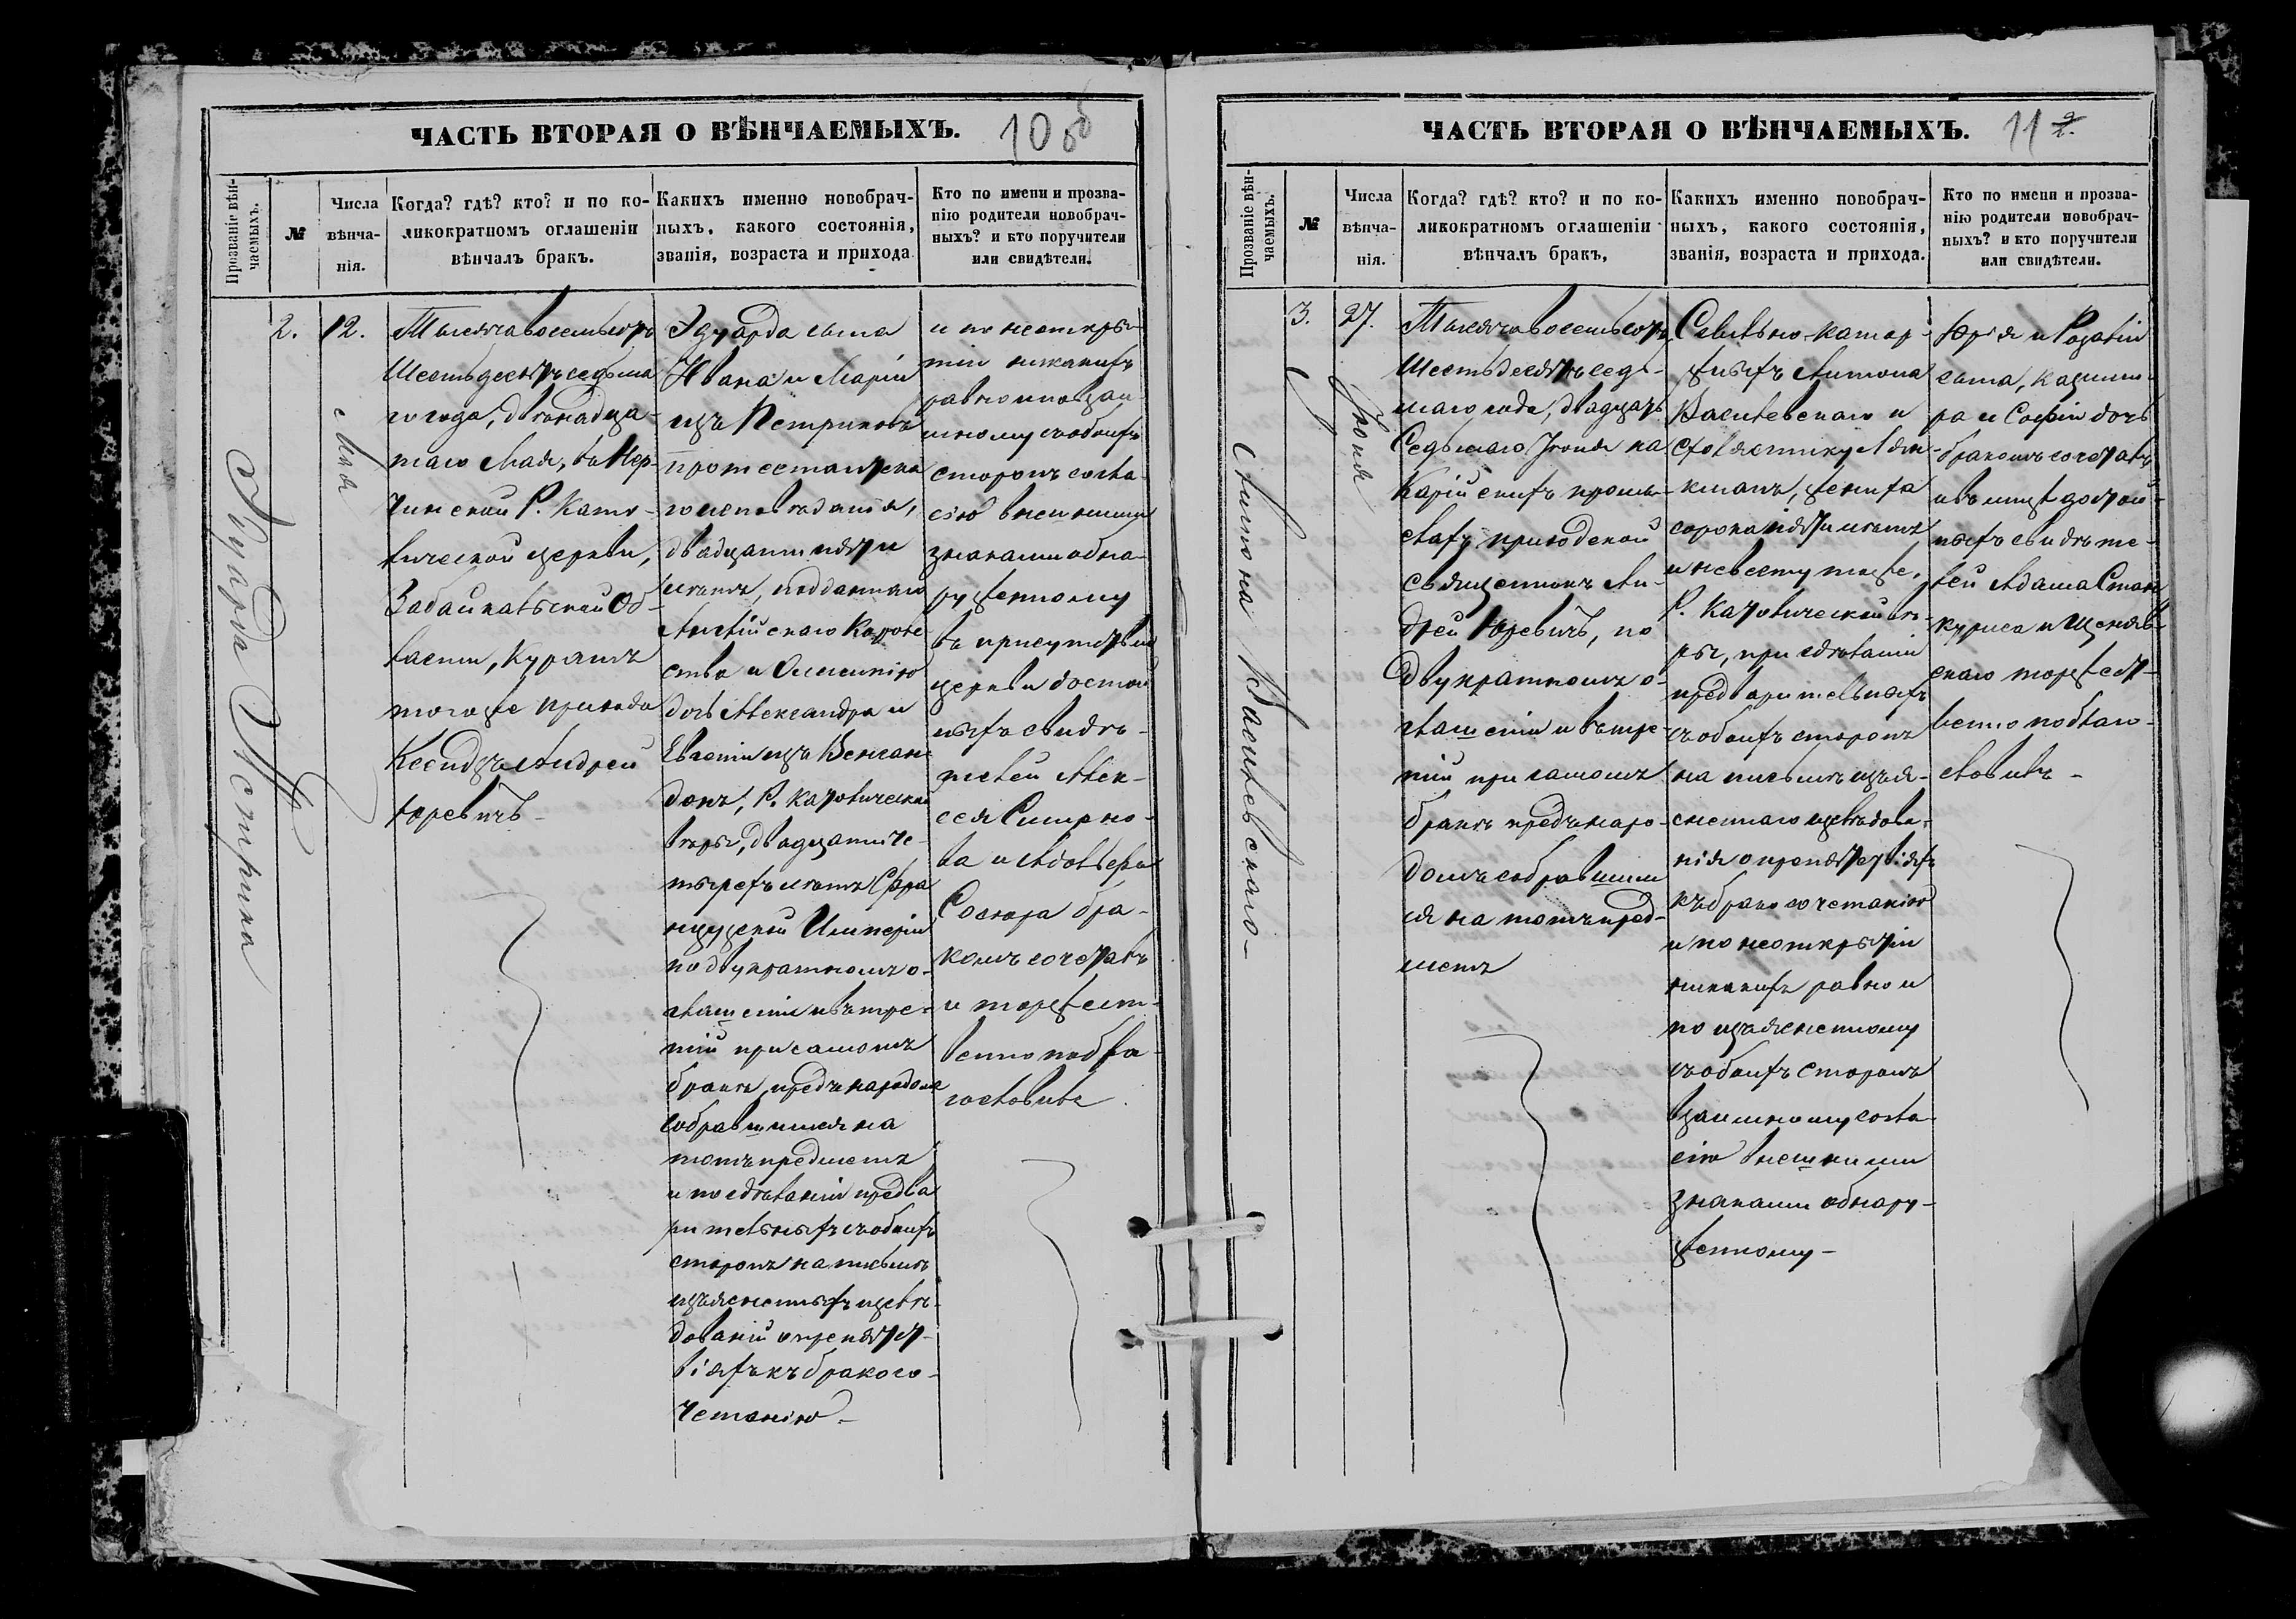 ЧАСТЬ ВТОРАЯ О ВѢНЧАЕМЫХЪ.
10 об
Прозваніе вѣн-
чаемыхъ.
№
Числа
вѣнча-
нія.
Когда? гдѣ? кто? и по ко-
ликократномъ оглашеніи
вѣнчалъ бракъ.
Какихъ именно новобрач-
ныхъ, какого состоянія,
званія, возраста и прихода
Кто по имени и прозва-
нію родители новобрач-
ныхъ? и кто поручители
или свидѣтели.
Эдуарда Петрика
2.
12.
Мая
Тысяча восемьсотъ
Шестьдесятъ седьма
го года, двѣнадца-
таго Мая, въ Нер-
чинской Р. Като-
лической церкви,
Забайкальской Об-
ласти, Куратъ
тогоже прихода
Ксендзъ Андрей
Юревичъ
Эдуарда сына
Ивана и Маріи
изъ Петриковъ
протестантска
го исповѣданія,
двадцати пяти
лѣтъ, подданнаго
Англійскаго Короле
ства и Олимпію
дочь Александра и
Евгеніи изъ
Р. Католической
вѣры, двадцати че-
тырехъ лѣтъ Фра
нцузской Имперіи
по двукратномъ о-
глашеніи и въ тре-
тій при самомъ
бракѣ, предъ народомъ
собравшимся на
тотъ предметъ
и по сдѣланіи предва
рительныхъ съ обоихъ
сторонъ на письмѣ
изъясненныхъ изслѣ-
дованій о препятст-
віяхъ къ бракосо-
четанію
и по неоткры-
тіи никакихъ
равно и по взаи-
мному съ обоихъ
сторонъ согла-
сію внешними
знаками обна-
руженному
въ присутствіи
церкви достой
ныхъ свидѣ-
телей Алек-
сея Смирно-
ва и Адольфа
бра-
комъ сочеталъ
и торжест-
венно побла-
гословилъ
ЧАСТЬ ВТОРАЯ О ВѢНЧАЕМЫХЪ.
11
Прозваніе вѣн-
чаемыхъ.
№
Числа
вѣнча-
нія.
Когда? гдѣ? кто? и по ко-
ликократномъ оглашеніи
вѣнчалъ бракъ,
Какихъ именно новобрач-
ныхъ, какого состоянія,
званія, возраста и прихода.
Кто по имени и прозва-
нію родители новобрач-
ныхъ? и кто поручители
или свидѣтели.
Антона Василевскаго
3.
27.
Іюня
Тысяча восемьсотъ
Шестьдесятъ седь-
маго года, двадцать
Седьмаго Іюня на
Карійскихъ промы-
слахъ приходской
священникъ Ан-
дрей Юревичъ, по
двукратномъ о-
глашеніи и въ тре-
тій при самомъ
бракѣ предъ наро-
домъ собравшим
ся на тотъ пред-
метъ
Ссыльно-катор-
жныхъ Антона
Василевскаго и
Схолястику
жениха
сорока пяти лѣтъ
и невесту тоже,
Р. Католической вѣ-
ры, при сдѣланіи
предварительныхъ
съ обоихъ сторонъ
на письмѣ изъя-
сненнаго изслѣдова-
нія о препятствіяхъ
къ бракосочетанію
и по неоткрытіи
никакихъ равно и
по изъясненному
съ обоихъ сторонъ
взаимному согла-
сію внешними
знаками обнару-
женному
Юрія и Розаліи
сына, Казими-
ра и Софіи дочь
бракомъ сочеталъ
и въ лицѣ достой-
ныхъ свидѣте-
лей Адама Стан
куриса и
скаго торжест-
венно поблаго-
словилъ